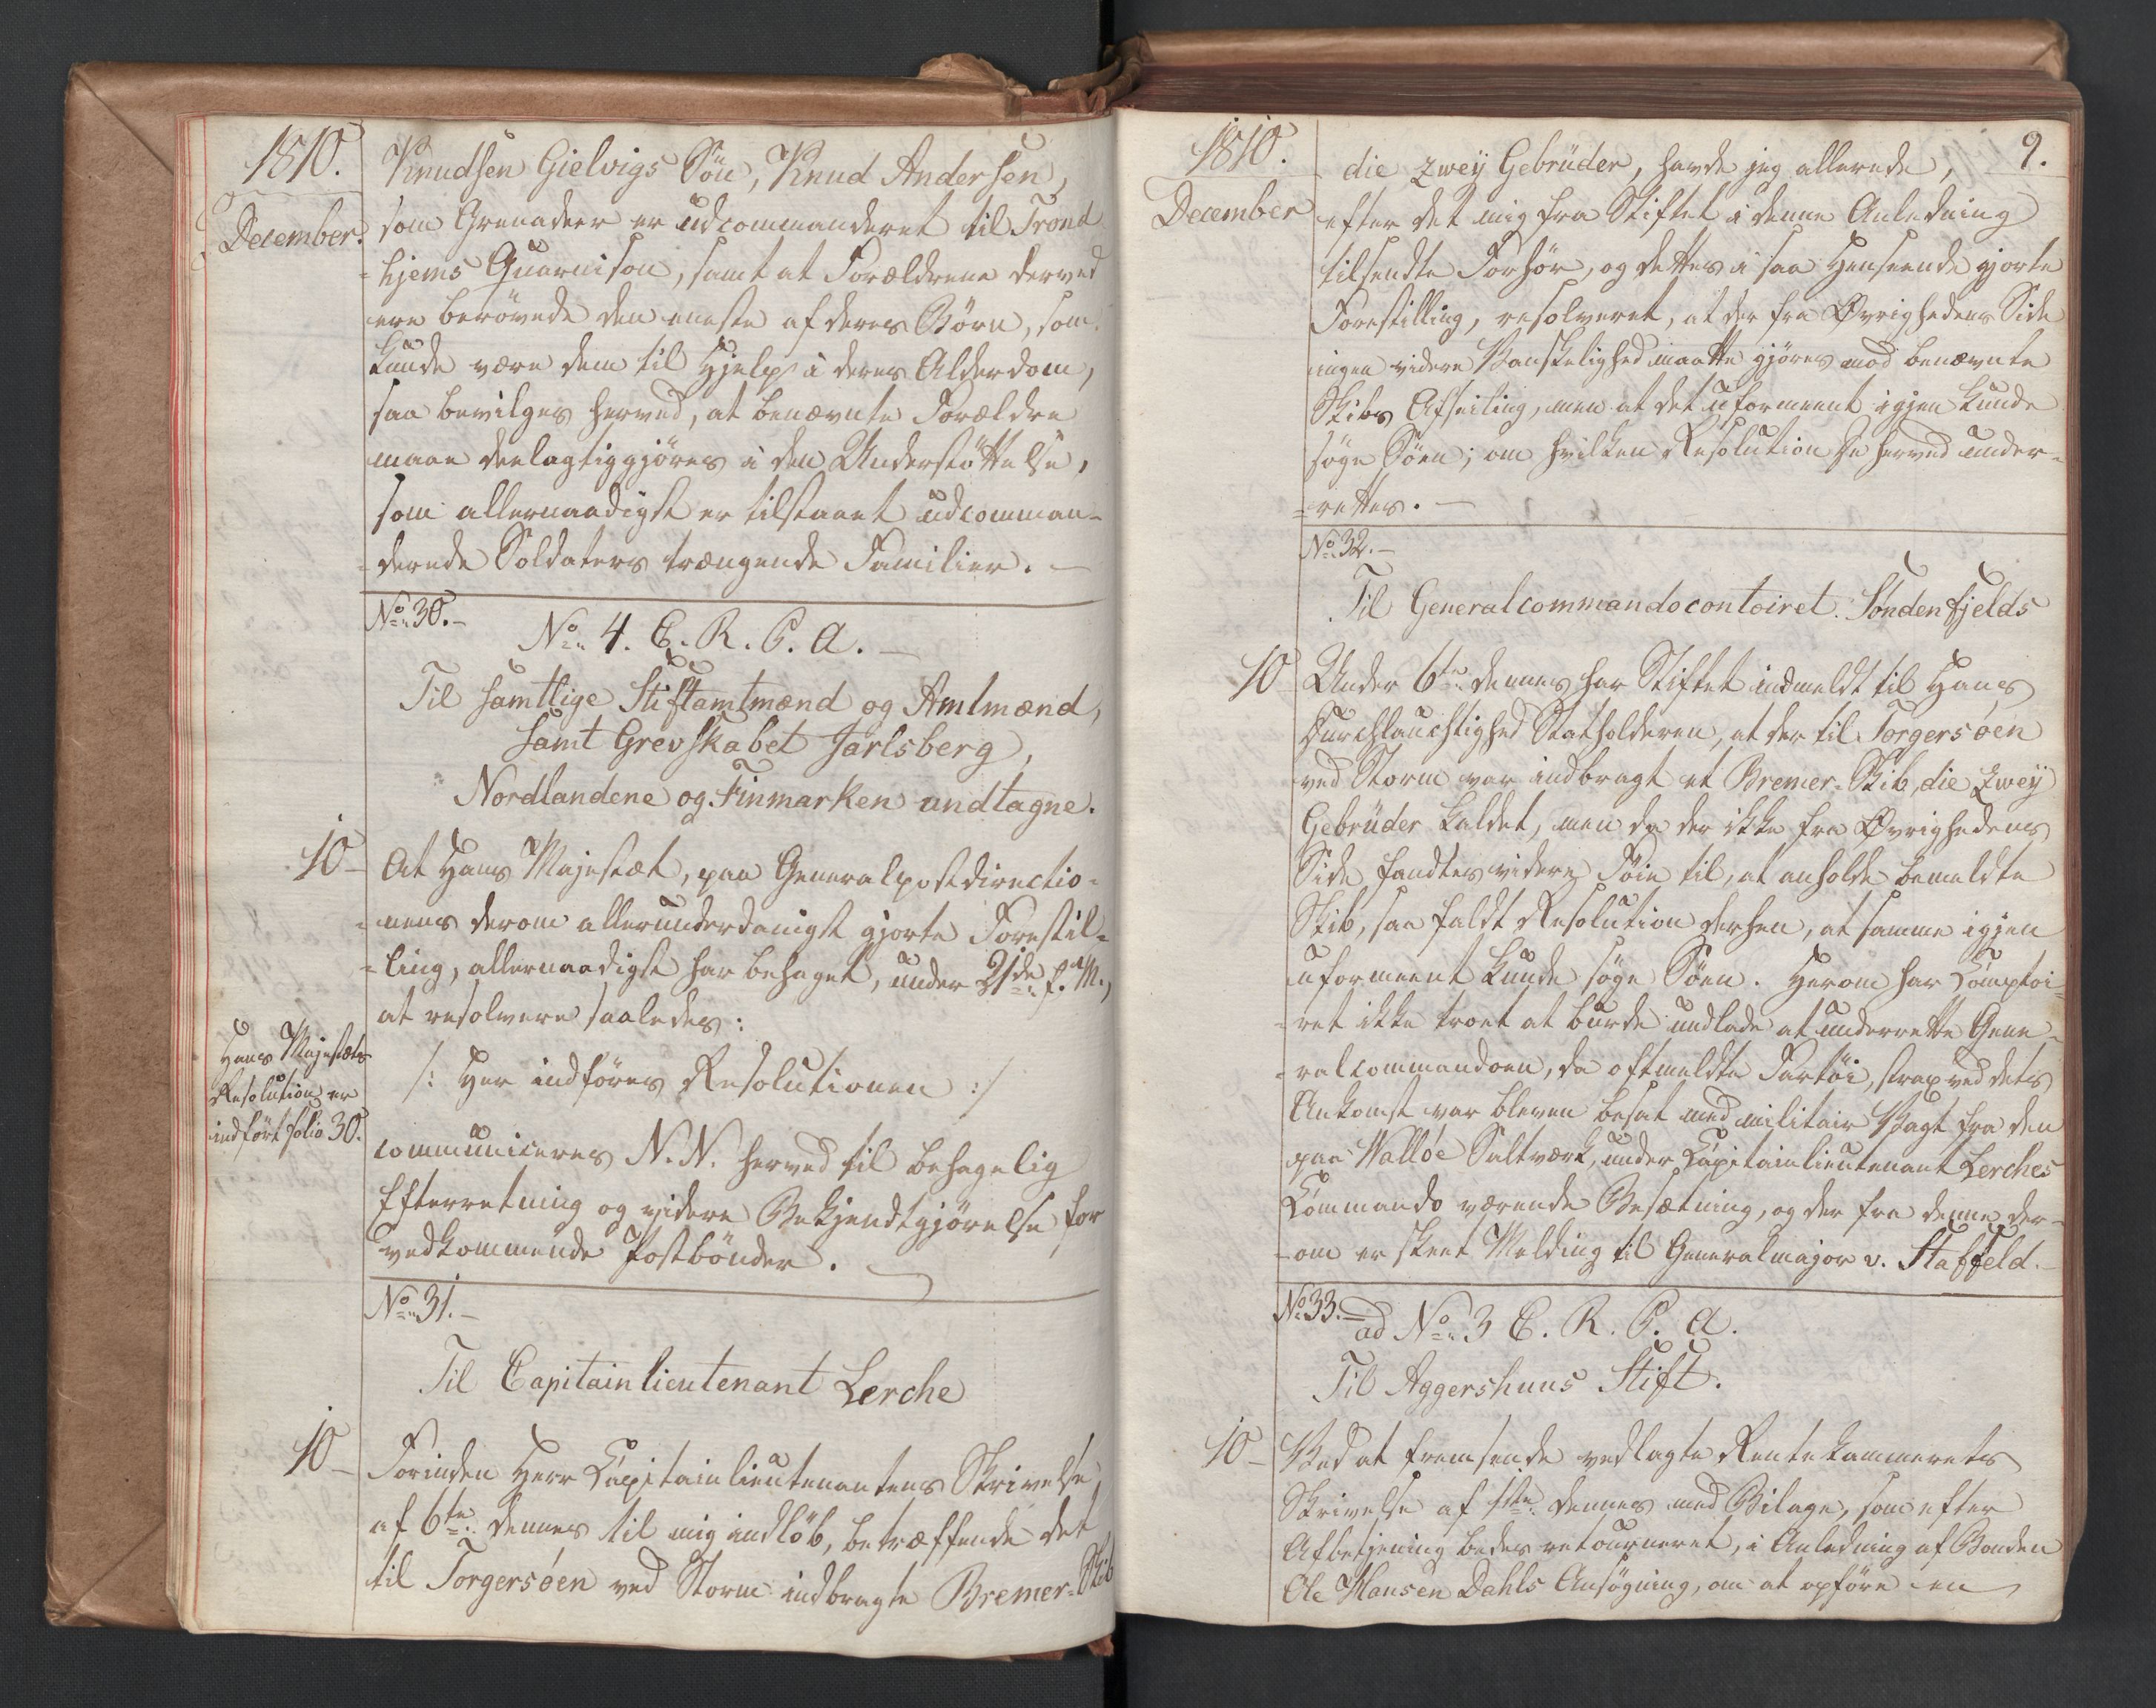 1810.
December.
Knudsen Gielvigs Søn, Knud Andersen,
som Grenadeer er udcommanderet til Trond
hjems Guarnison, samt at Forældrene derved
ere berövede den eneste af deres Börn, som
kunde være dem til Hjelp i deres Alderdom,
saa bevilges herved, at benævnte Forældre
maae deelagtiggjöres i den Understöttelse,
som allernaadigst er tilstaaet udcomman-
-derede Soldaters trængende Familier. -
No. 30. -
No. 4. C. R. P. A. -
Til samtlige Stiftamtmænd og Amtmænd,
samt Grevskabet Jarlsberg,
Nordlandene og Finmarken undtagne.
10 -
At Hans Majestæt, paa Generalpostdirectio-
-nens derom allerunderdanigst gjorte Forestil-
-ling, allernaadigst har behaget, under 21de f. M.,
at resolvere saaledes:
Hans Majestæts
Resolution er
indfört folio 30.
/: Her indföres Resolutionen :/
communiceres N. N. herved til behagelig
Efterretning og videre Bekjendtgjörelse for
vedkommende Postbönder.
No. 31. -
Til Capitainlieutenant Lerche
10 -
Forinden Herr Capitainlieutenantens Skrivelse
af 6te dennes til mig indlöb, betræffende det
til Torgersöen ved Storm indbragte Bremer-Skib
1810.
December
9.
die zweÿ Gebrüder, havde jeg allerede,
efter det mig fra Stiftet i denne Anledning
tilsendte Forhör, og dettes i saa Henseende gjorte
Forestilling, resolveret, at der fra Øvrighedens Side
ingen videre Vanskelighed maatte gjöres mod benævnte
Skibs Afseiling, men at det uformeent igjen kunde
söge Söen; om hvilken Resolution De herved under-
-rettes. -
No. 32. -
Til Generalcommandocontoiret Söndenfjelds
10
Under 6te dennes har Stiftet indmeldt til Hans
Durchlauchtighed Statholderen, at der til Torgersöen
ved Storm var indbragt et Bremer-Skib, die Zweÿ
Gebrüder kaldet, men da der ikke fra Øvrighedens
Side fandtes videre Föie til, at anholde bemeldte
Skib, saa faldt Resolution derhen, at samme igjen
uformeent kunde söge Söen. Herom har Comptoi-
-ret ikke troet at burde undlade at underrette Gene-
-ralcommandoen, da oftmeldte Fartöi, strax ved dets
Ankomst var bleven besat med militair Vagt fra den
paa Wallöe Saltværk, under Capitainlieutenant Lerches
Commando værende Besætning, og der fra denne der-
-om er skeet Melding til Generalmajor v. Staffeld. -
No. 33. -
ad No. 3 C. R. P. A.
Til Aggershuus Stift.
10 -
Ved at fremsende vedlagte Rentekammerets
Skrivelse af 1ste dennes med Bilage, som efter
Afbetjening bedes retourneret, i Anledning af Bonden
Ole Hansen Dahls Ansögning, om at opföre en